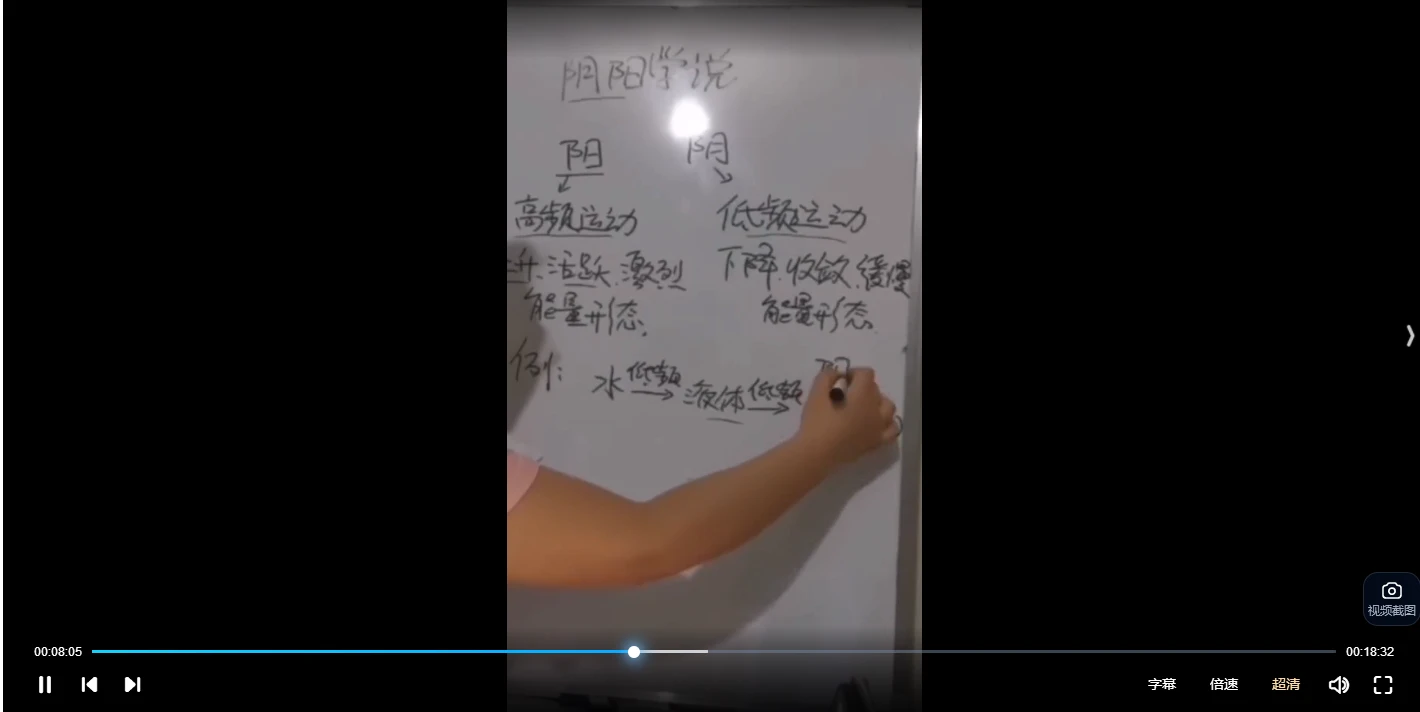 阴阳学说
阳 阴
高频运动 低频运动
升、活跃、激烈 下降、收敛、缓慢
能量形态. 能量形态.
例: 水 低频 液体 低频 阴
视频截图
00:08:05 00:18:32
字幕 倍速 超清